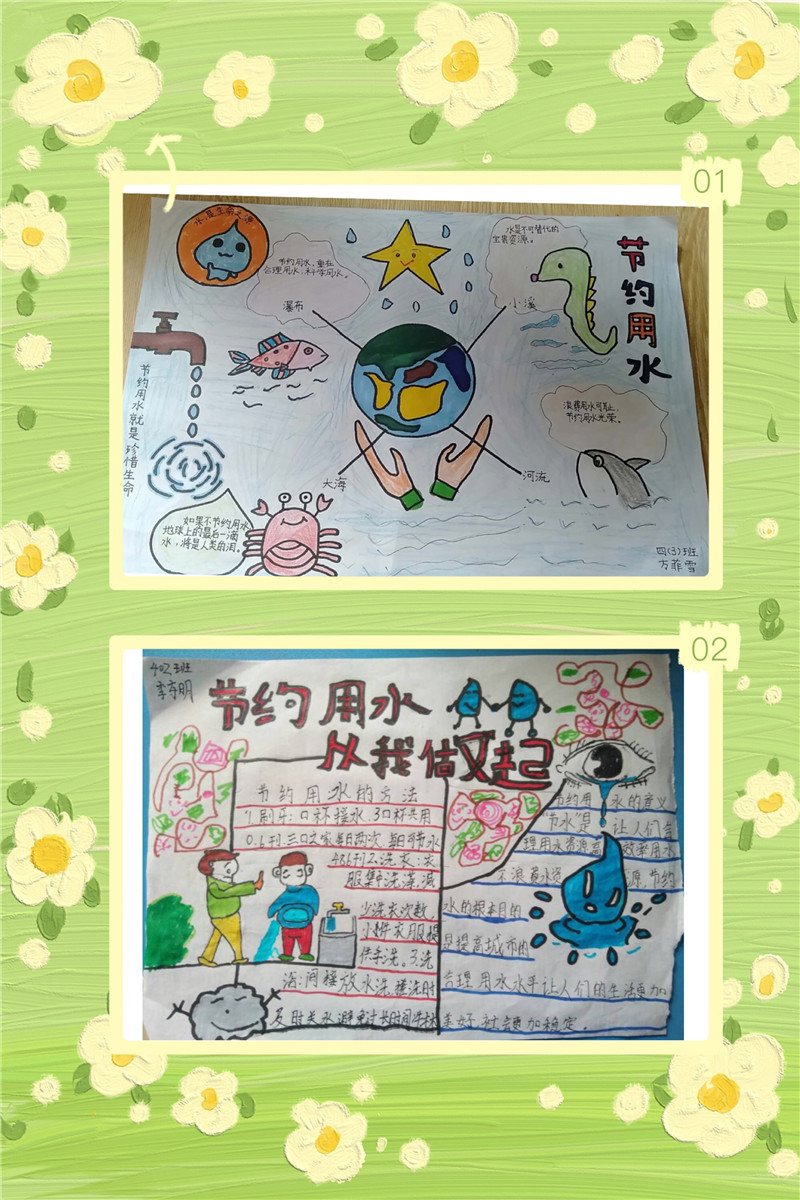 01
水是生命之源
节约用水,重在
合理用水,科学用水。
水是不可替代的
宝贵资源。
节约用水
瀑布
小溪
节约用水就是珍惜生命
浪费用水可耻,
节约用水光荣。
大海
河流
如果不节约用水
地球上的最后一滴
水,将是人类的泪。
四(3)班
方菲雪
02
402班
节约用水
从我做起
节约用水的方法
1.刷牙:口杯接水 3口杯共用
0.6升三口之家每日两次 每日可节水
486升2.洗衣:衣
服集中洗涤,减
少洗衣次数,
小件衣服提
倡手洗。3.洗
浴:间接放水洗,搓洗时
及时关水,避免过长时间
节约用水的意义
"节水"是 让人们合
理用水资源高效率用水
不浪费水资源.节约
水的根本目的
是提高城市的
合理用水水平让人们的生活更加
美好,社会更加稳定.